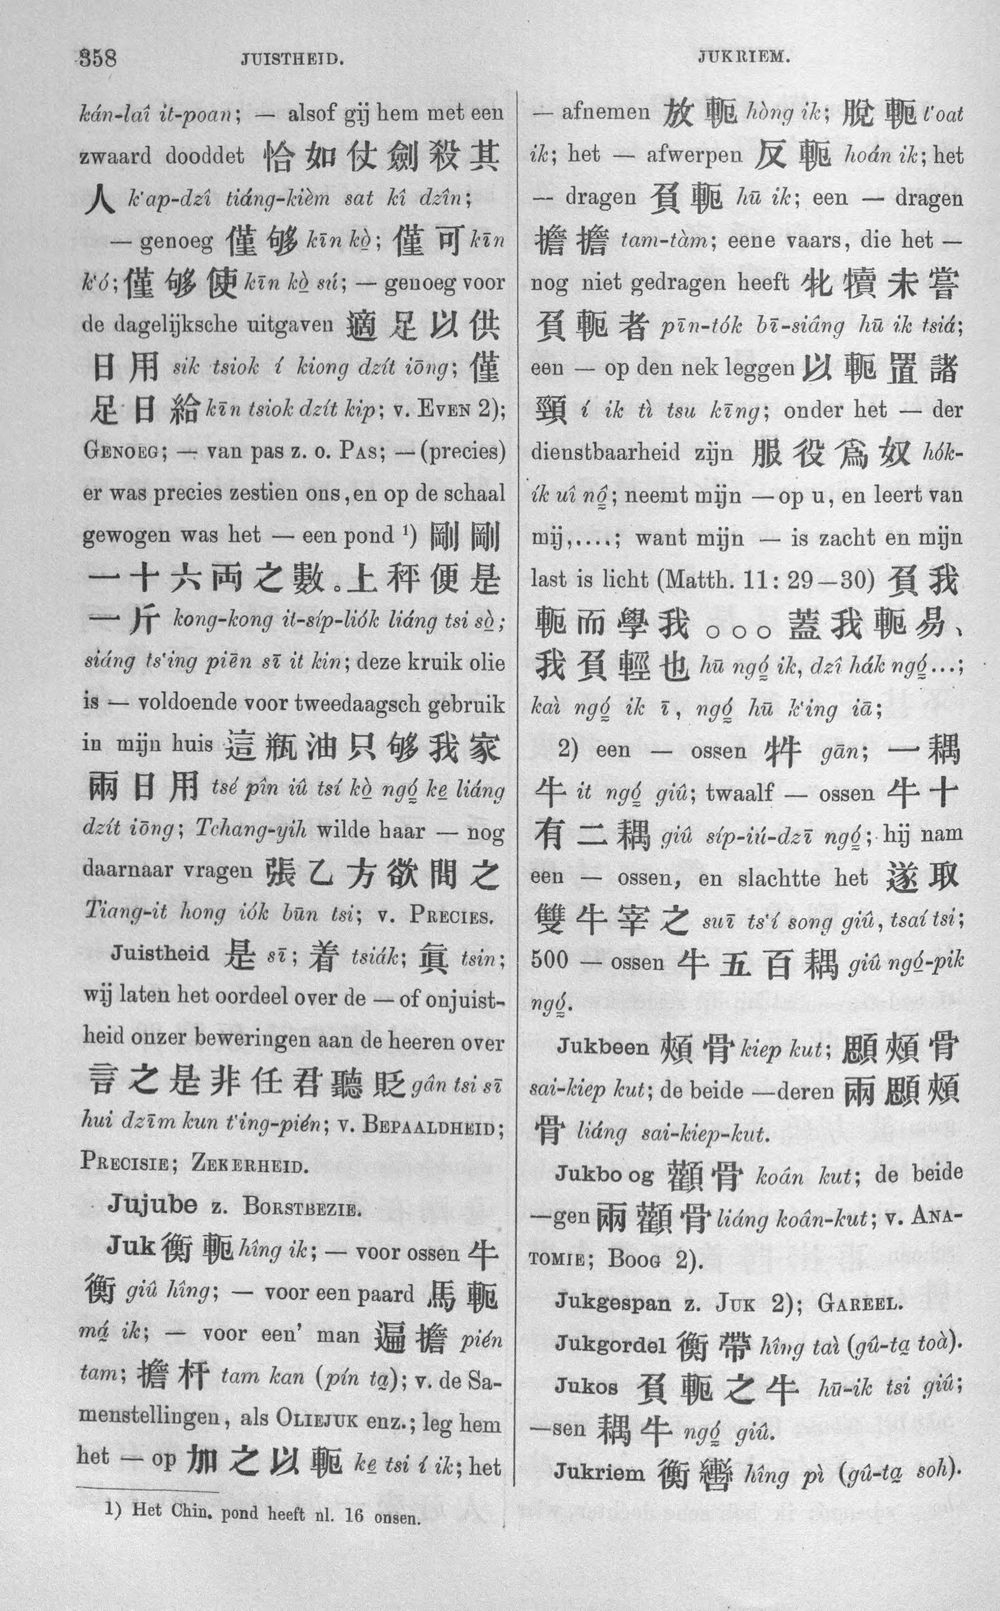 358 JUISTHEID. JUKRIEM.
kán-laî it-poan; — alsof gij hem met een
zwaard dooddet 恰如仗劍殺其
人 k'ap-dzî tiáng-kièm sat kî dzîn;
— genoeg 僅够 kīn kò; 僅可 kīn
k'ó; 僅够使 kīn kò sú; — genoeg voor
de dagelijksche uitgaven 適足以供
日用 sik tsiok í kiong dzít iōng; 僅
足日給 kīn tsiok dzít kip; v. EVEN 2);
GENOEG; — van pas z. o. PAS; — (precies)
er was precies zestien ons, en op de schaal
gewogen was het — een pond ¹) 剛剛
一十六両之數。上秤便是
一斤 kong-kong it-síp-liók liáng tsi sò;
siáng ts'ing piēn sī it kin; deze kruik olie
is — voldoende voor tweedaagsch gebruik
in mijn huis 這瓶油只够我家
兩日用 tsé pîn iû tsí kò ngó ke liáng
dzít iōng; Tchang-yih wilde haar — nog
daarnaar vragen 張乙方欲問之
Tiang-it hong iók būn tsi; v. PRECIES.
Juistheid 是 sī; 着 tsiák; 眞 tsin;
wij laten het oordeel over de — of onjuist-
heid onzer beweringen aan de heeren over
言之是非任君聽貶 gân tsi sī
hui dzīm kun t'ing-pién; v. BEPAALDHEID;
PRECISIE; ZEKERHEID.
Jujube z. BORSTBEZIE.
Juk 衡軛 hîng ik; — voor ossen 牛
衡 giû hîng; — voor een paard 馬軛
má ik; — voor een' man 逼擔 pién
tam; 擔杆 tam kan (pín ta); v. de Sa-
menstellingen, als OLIEJUK enz.; leg hem
het — op 加之以軛 ke tsi í ik; het
1) Het Chin. pond heeft nl. 16 onsen.
— afnemen 放軛 hòng ik; 脫軛 t'oat
ik; het — afwerpen 反軛 hoán ik; het
— dragen 負軛 hū ik; een — dragen
擔擔 tam-tàm; eene vaars, die het —
nog niet gedragen heeft 牝犢未嘗
負軛者 pīn-tók bī-siâng hū ik tsiá;
een — op den nek leggen 以軛置諸
頸 í ik tì tsu kīng; onder het — der
dienstbaarheid zijn 服役爲奴 hók-
ík uî nô; neemt mijn — op u, en leert van
mij,....; want mijn — is zacht en mijn
last is licht (Matth. 11: 29—30) 負我
軛而學我。。。蓋我軛易、
我負輕也 hū ngó ik, dzî hák ngó...;
kaì ngó ik ī, ngó hū k'ing iā;
2) een — ossen 牪 gān; 一耦
牛 it ngó giû; twaalf — ossen 牛十
有二耦 giû síp-iú-dzī ngó; hij nam
een — ossen, en slachtte het 遂取
雙牛宰之 suī ts'í song giû, tsaí tsi;
500 — ossen 牛五百耦 giû ngó-pik
ngó.
Jukbeen 頰骨 kiep kut; 顋頰骨
sai-kiep kut; de beide —deren 兩顋頰
骨 liáng sai-kiep-kut.
Jukboog 顴骨 koân kut; de beide
—gen 兩顴骨 liáng koân-kut; v. ANA-
TOMIE; BOOG 2).
Jukgespan z. JUK 2); GAREEL.
Jukgordel 衡帶 hîng taì (gû-ta toà).
Jukos 負軛之牛 hū-ik tsi giû;
—sen 耦牛 ngó giû.
Jukriem 衡轡 hîng pì (gû-ta soh).